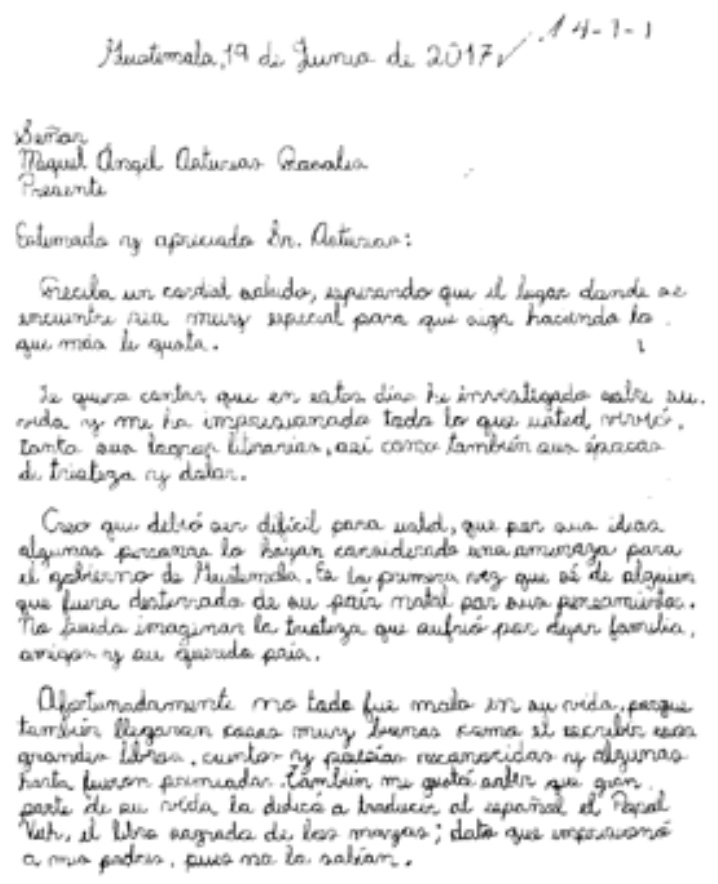 14-1-1
Guatemala, 19 de Junio de 2017
Señor
Miguel Ángel Asturias Rosales
Presente
Estimado y apreciado Sr. Asturias:
Reciba un cordial saludo, esperando que el lugar donde se
encuentre sea muy especial para que siga haciendo lo
que más le gusta.
Le quiero contar que en estos días he investigado sobre su
vida y me ha impresionado todo lo que usted vivió,
tanto sus logros literarios, así como también sus épocas
de tristeza y dolor.
Creo que debió ser difícil para usted, que por sus ideas
algunas personas lo hayan considerado una amenaza para
el gobierno de Guatemala. Es la primera vez que sé de alguien
que fuera desterrado de su país natal por sus pensamientos.
No puedo imaginar la tristeza que sufrió por dejar familia,
amigos y su querido país.
Afortunadamente no todo fue malo en su vida, porque
también llegaron cosas muy buenas como el escribir esos
grandes libros, cuentos y poesías reconocidas y algunas
hasta fueron premiadas. También me gustó saber que gran
parte de su vida la dedicó a traducir al español el Popol
Vuh, el libro sagrado de los mayas; dato que impresionó
a mis padres, pues no lo sabían.